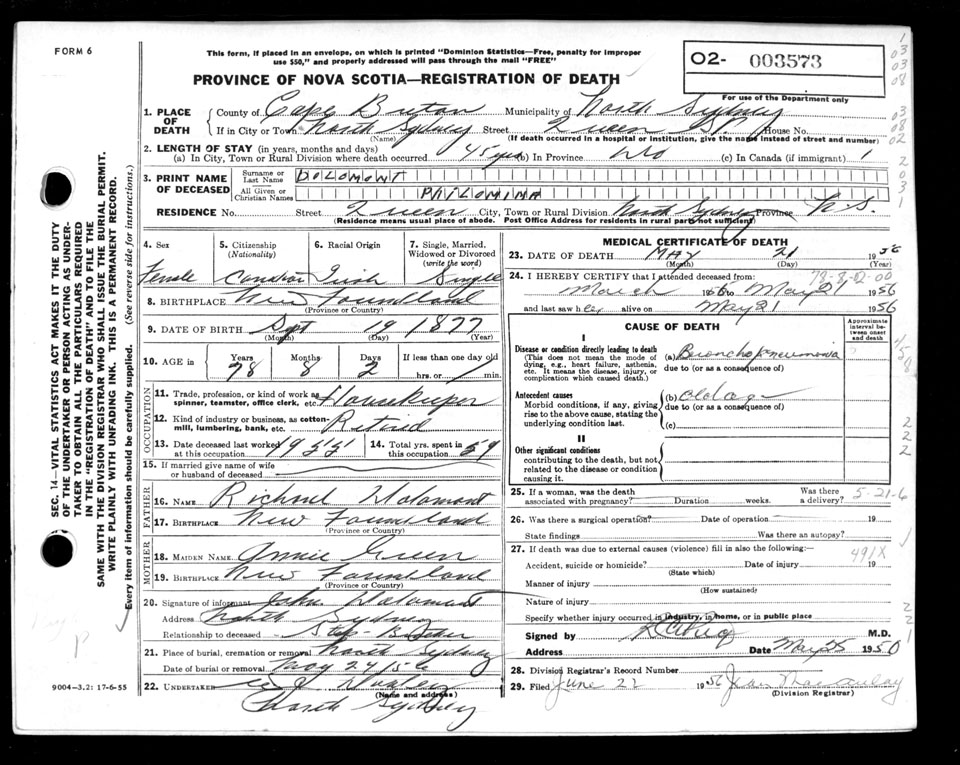 FORM 6
This form, if placed in an envelope, on which is printed "Dominion Statistics—Free, penalty for improper
use $50," and properly addressed will pass through the mail "FREE"
O2- 003573
PROVINCE OF NOVA SCOTIA—REGISTRATION OF DEATH
For use of the Department only
1. PLACE OF DEATH
County of Cape Breton Municipality of North Sydney
If in City or Town North Sydney Street Queen St. House No.
(Name) (If death occurred in a hospital or institution, give the name instead of street and number)
2. LENGTH OF STAY (in years, months and days)
(a) In City, Town or Rural Division where death occurred 45 yrs (b) In Province (c) In Canada (if immigrant)
3. PRINT NAME OF DECEASED
Surname or Last Name DOLOMONT
All Given or Christian Names PHILOMINA
RESIDENCE No. Street Queen City, Town or Rural Division North Sydney Province N.S.
(Residence means usual place of abode. Post Office Address for residents in rural parts not sufficient)
4. Sex
Female
5. Citizenship (Nationality)
6. Racial Origin
Irish
7. Single, Married, Widowed or Divorced (write the word)
Single
8. BIRTHPLACE New Foundland
(Province or Country)
9. DATE OF BIRTH Sept 19 1877
(Month) (Day) (Year)
10. AGE in Years Months Days If less than one day old
78 8 2 hrs. or min.
OCCUPATION
11. Trade, profession, or kind of work as spinner, teamster, office clerk, etc. Housekeeper
12. Kind of industry or business, as cotton-mill, lumbering, bank, etc. Retired
13. Date deceased last worked at this occupation
14. Total yrs. spent in this occupation 59
15. If married give name of wife or husband of deceased
FATHER
16. NAME Richard Dolomont
17. BIRTHPLACE New Foundland
(Province or Country)
MOTHER
18. MAIDEN NAME Annie Green
19. BIRTHPLACE New Foundland
(Province or Country)
20. Signature of informant John Dolomont
Address North Sydney
Relationship to deceased Step-Brother
21. Place of burial, cremation or removal North Sydney
Date of burial or removal May 24/56
22. UNDERTAKER
(Name and address)
North Sydney
9004—3.2: 17-6-55
MEDICAL CERTIFICATE OF DEATH
23. DATE OF DEATH MAY 21 1956
(Month) (Day) (Year)
24. I HEREBY CERTIFY that I attended deceased from:
March 1956 to May 21 1956
and last saw her alive on May 21 1956
78-8-02-00
CAUSE OF DEATH
Approximate interval between onset and death
I
Disease or condition directly leading to death
(This does not mean the mode of dying, e.g., heart failure, asthenia, etc. It means the disease, injury, or complication which caused death.)
(a) Bronchopneumonia
due to (or as a consequence of)
Antecedent causes
Morbid conditions, if any, giving rise to the above cause, stating the underlying condition last.
(b) Old age
due to (or as a consequence of)
(c)
II
Other significant conditions
contributing to the death, but not related to the disease or condition causing it.
25. If a woman, was the death associated with pregnancy? Duration weeks. Was there a delivery?
5-21-6
26. Was there a surgical operation? Date of operation 19
State findings Was there an autopsy?
27. If death was due to external causes (violence) fill in also the following:—
491X
Accident, suicide or homicide? Date of injury 19
(State which)
Manner of injury
(How sustained)
Nature of injury
Specify whether injury occurred in industry, in home, or in public place
Signed by M.D.
Address Date May 25 1950
28. Division Registrar's Record Number
29. Filed June 22 1956 Jean MacAulay
(Division Registrar)
SEC. 14—VITAL STATISTICS ACT MAKES IT THE DUTY
OF THE UNDERTAKER OR PERSON ACTING AS UNDER-
TAKER TO OBTAIN ALL THE PARTICULARS REQUIRED
IN THE "REGISTRATION OF DEATH" AND TO FILE THE
SAME WITH THE DIVISION REGISTRAR WHO SHALL ISSUE THE BURIAL PERMIT.
WRITE PLAINLY WITH UNFADING INK. THIS IS A PERMANENT RECORD.
Every item of information should be carefully supplied. (See reverse side for instructions.)